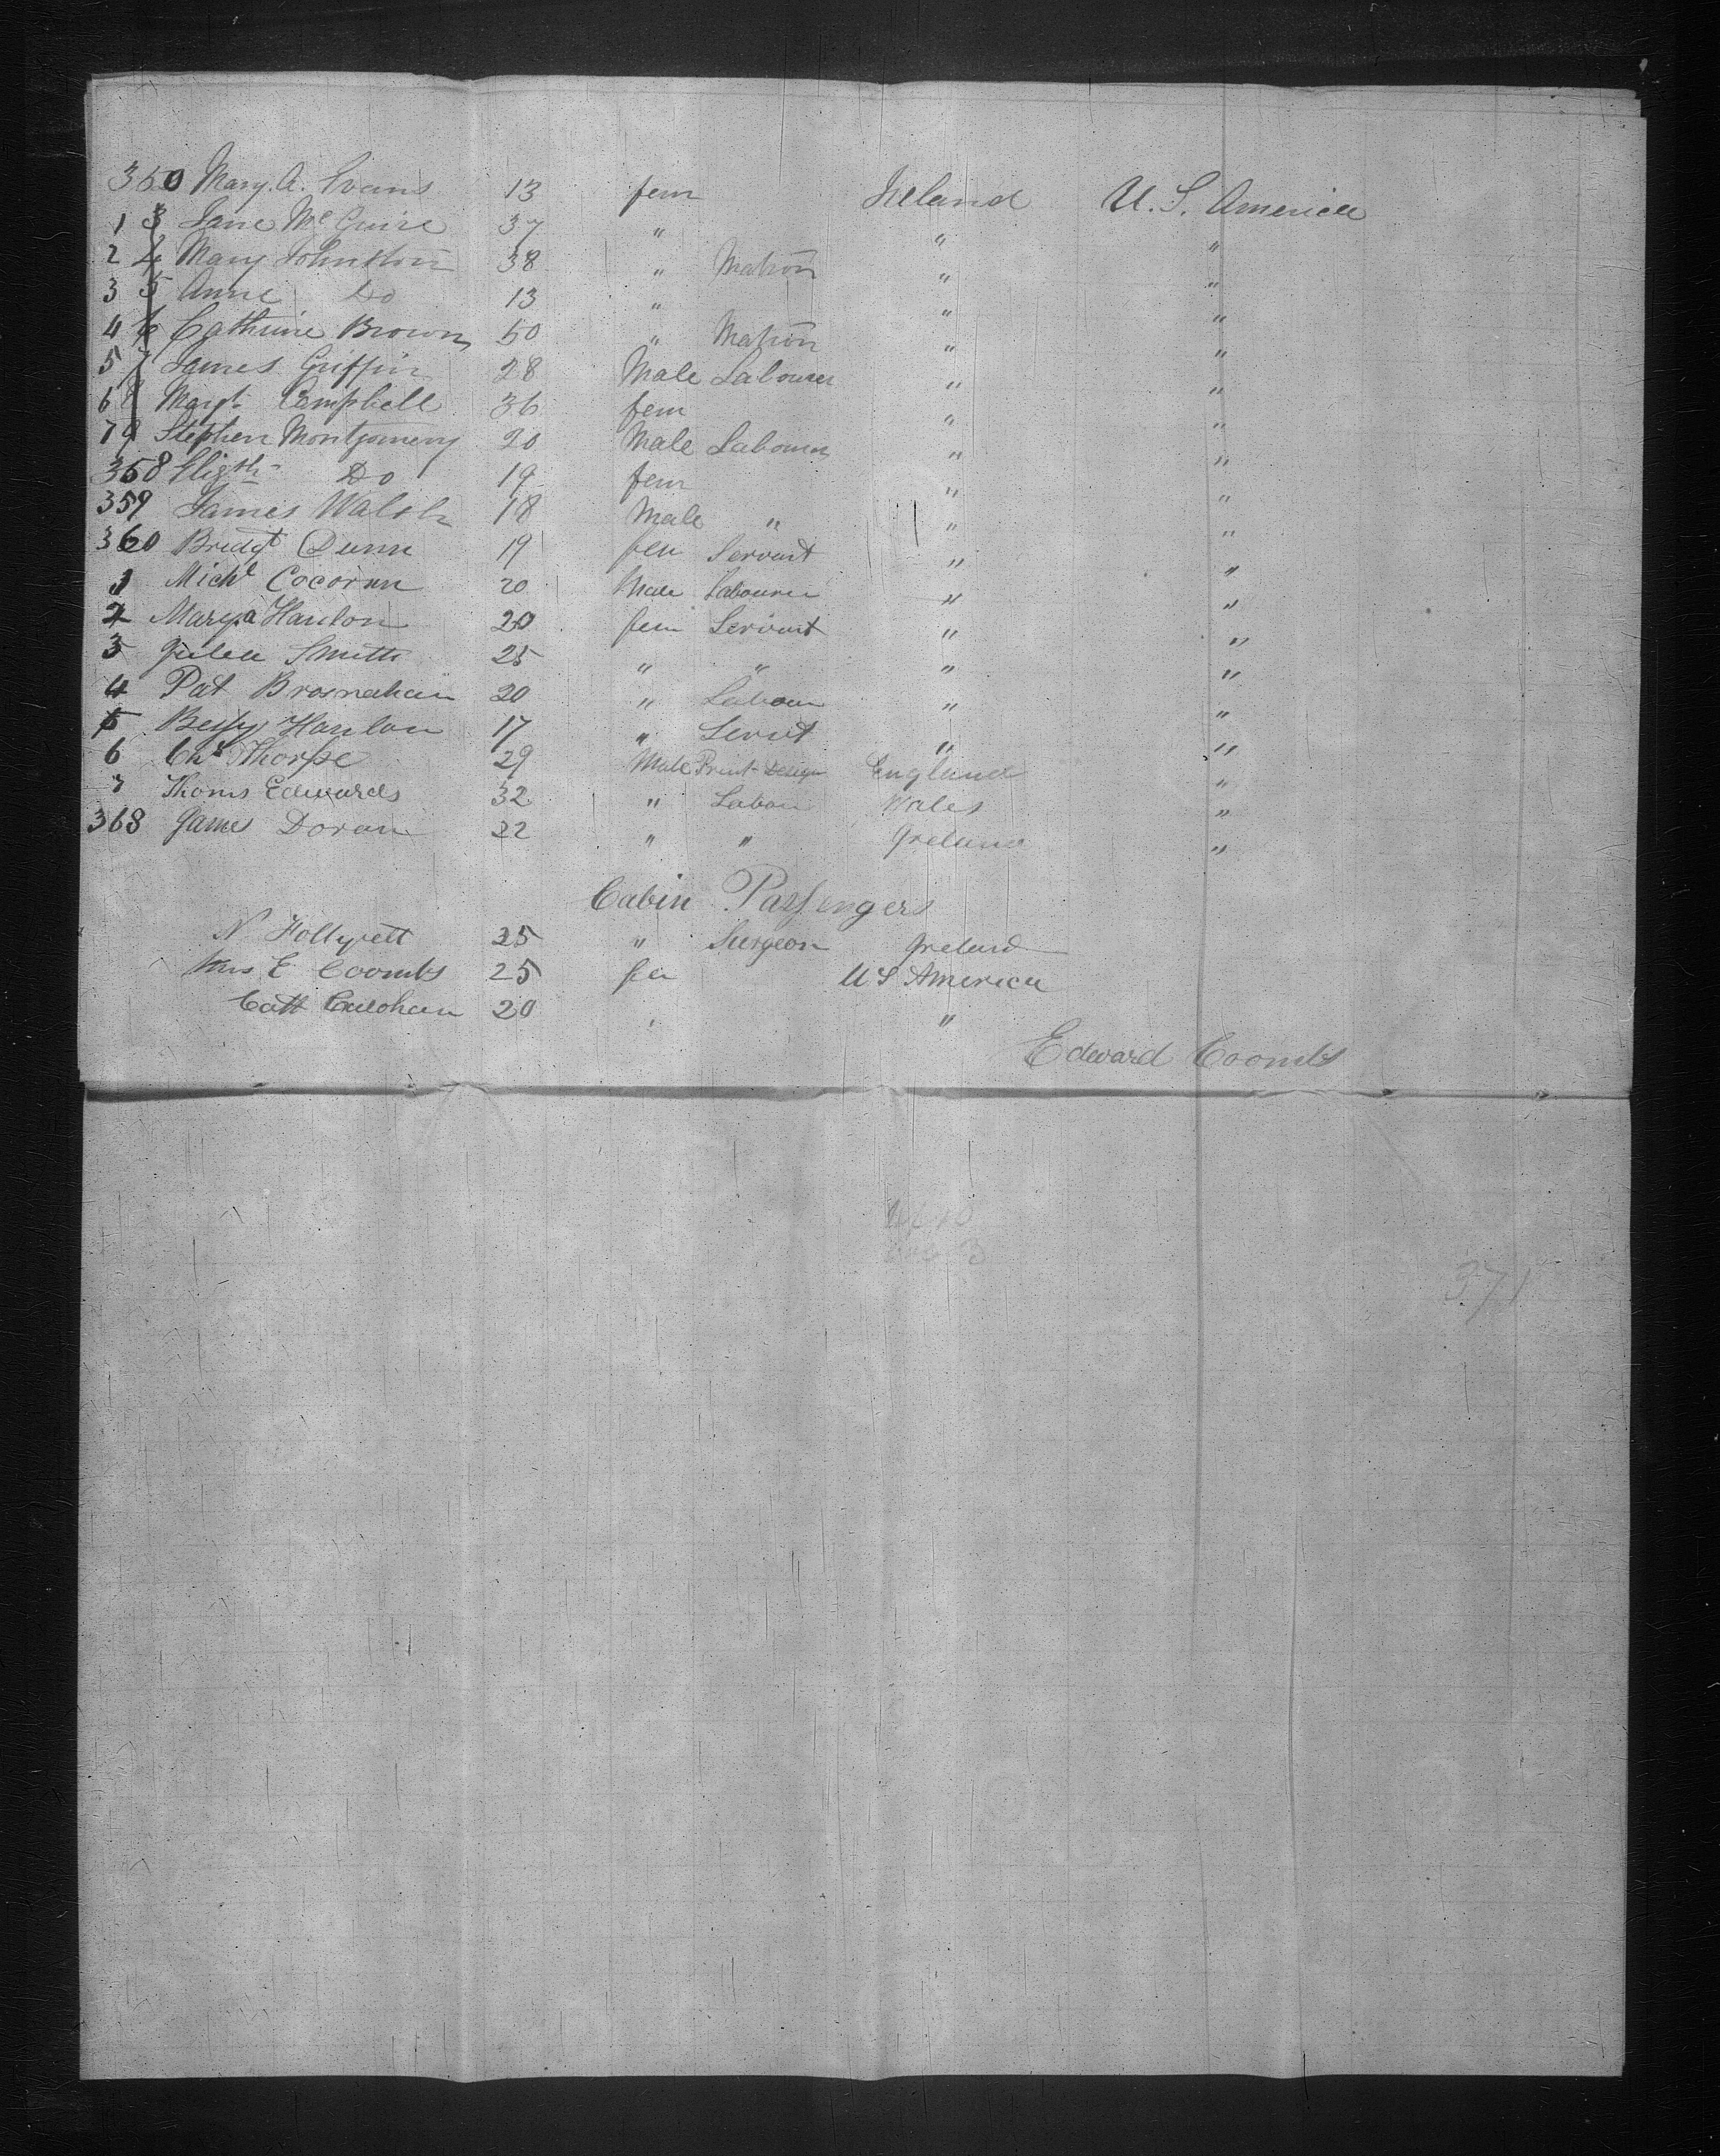 350 Mary. A. Evans 13 fem Ireland U. S. America
1 3 Jane Mc Guire 37 " " "
2 4 Mary Johnston 38 " Matron " "
3 5 Anne Do 13 " " "
4 6 Cathrine Brown 50 " Matron " "
5 7 James Griffin 28 Male Labourer " "
6 8 Margt. Campbell 36 fem " "
7 9 Stephen Montgomery 20 Male Labourer " "
358 Elizth Do 19 fem " "
359 James Walsh 18 Male " " "
360 Bridgt Dunn 19 fem Servant " "
1 Michl Cocoran 20 Male Labourer " "
2 Mary a Hanlon 20 fem Servant " "
3 Julia Smith 25 " " " "
4 Pat Brosnahan 20 " Labour " "
5 Bessy Hanlon 17 " Servt " "
6 Chs Thorpe 29 Male Print-Design England "
7 Thoms Edwards 32 " Labou Wales "
368 James Doran 22 " " Ireland "
Cabin Passengers
N 25 " Surgeon Ireland
Mrs E Coombs 25 fem U S America
Cath 20 " "
Edward Coombs
371